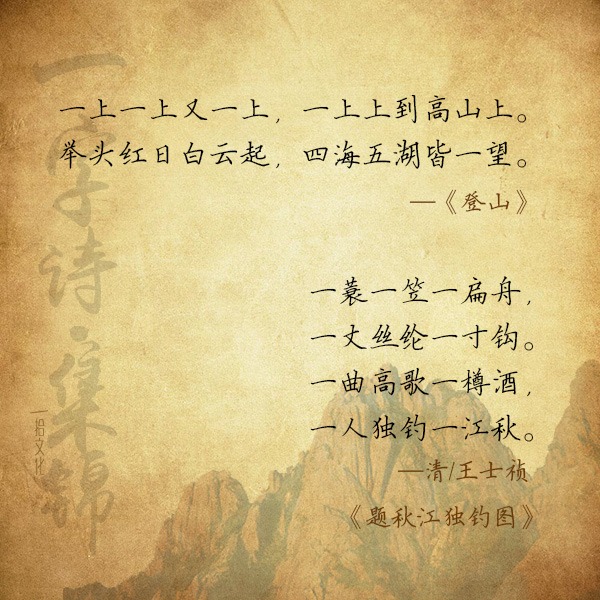 一字诗集锦
一拾文化
一上一上又一上，一上上到高山上。
举头红日白云起，四海五湖皆一望。
—《登山》
一蓑一笠一扁舟，
一丈丝纶一寸钩。
一曲高歌一樽酒，
一人独钓一江秋。
—清/王士祯
《题秋江独钓图》